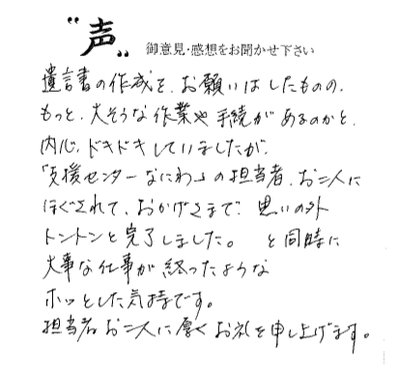 "声" 御意見・感想をお聞かせ下さい
遺言書の作成を、お願いはしたものの、
もっと、大そうな作業や手続があるのかと、
内心、ドキドキしていましたが、
「支援センターなにわ」の担当者、お二人に
ほぐされて、おかげさまで、思いの外
トントンと完了しました。 と同時に
大事な仕事が終ったような
ホッとした気持です。
担当者お二人に厚くお礼を申し上げます。